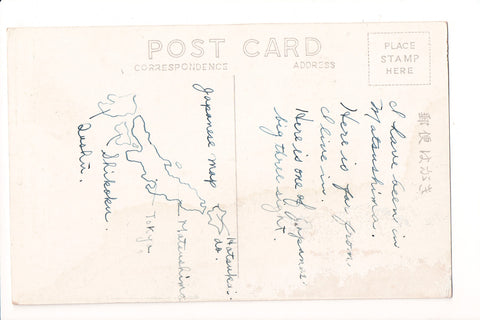 POST CARD
CORRESPONDENCE
ADDRESS
PLACE
STAMP
HERE
郵便はがき
I have been in
Matsushima.
Here is far from
I live in.
Here is one of Japanese
big three sight.
Japanese map
Hotsukai-
do.
Matsushima
Tokyo
Shikoku.